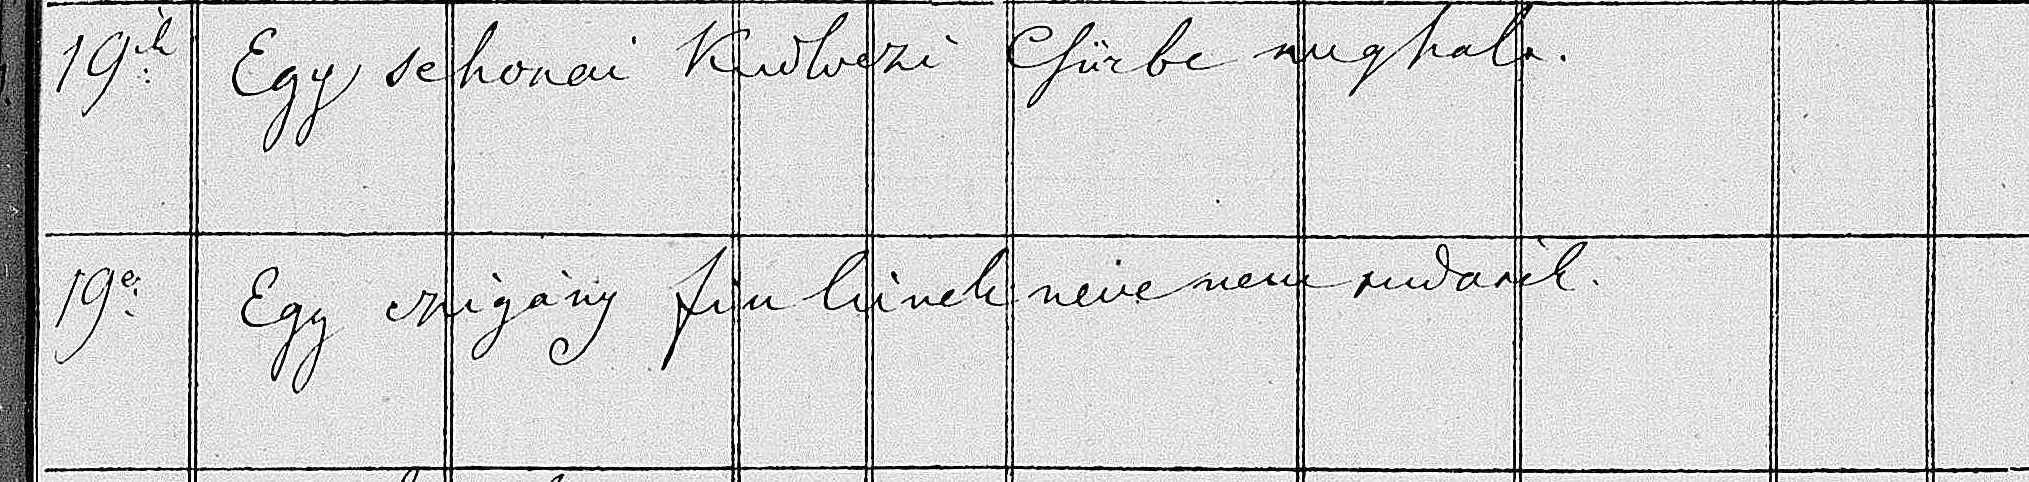 19ik Egy sehonai Kudwozi Chürbe meghalt.
19e: Egy czigány fiu kinek neve nem tudatik.